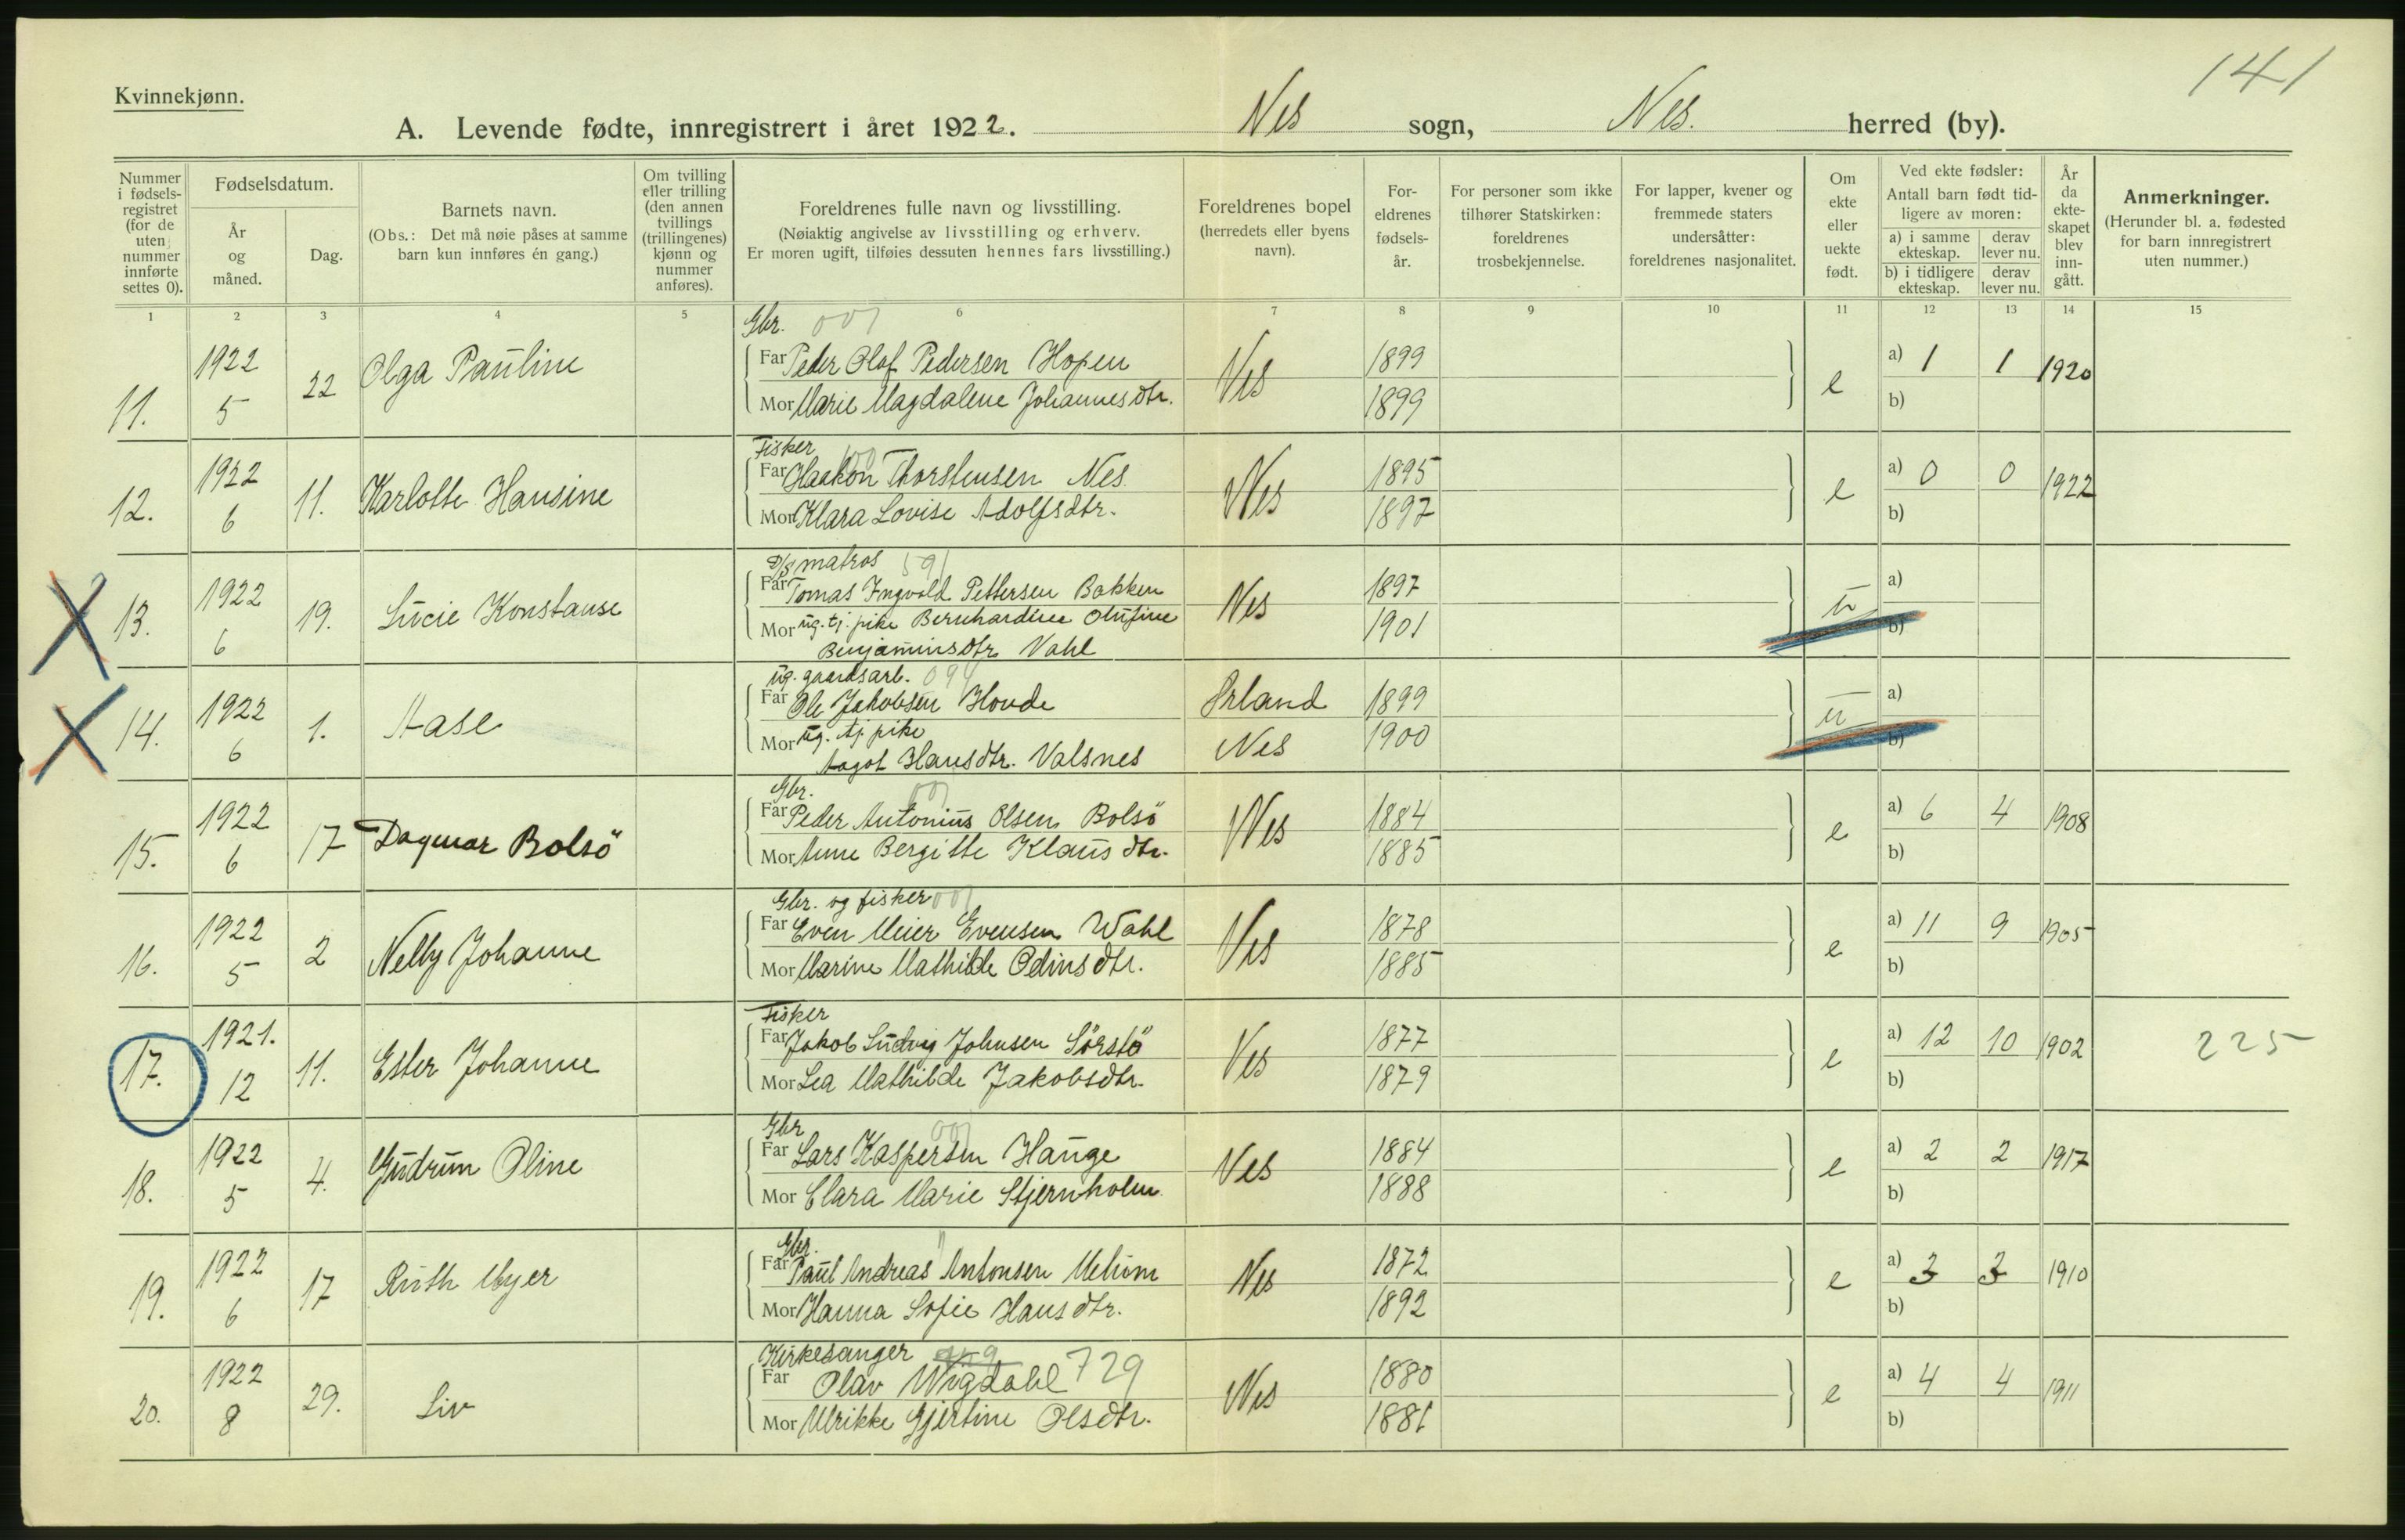 141
Kvinnekjønn.
A. Levende fødte, innregistrert i året 1922. Nes sogn, Nes. herred (by).
Nummer i fødsels-registret (for de uten nummer innførte settes 0).
Fødselsdatum.
År og måned.
Dag.
Barnets navn.
(Obs.: Det må nøie påses at samme barn kun innføres én gang.)
Om tvilling eller trilling (den annen tvillings (trillingenes) kjønn og nummer anføres).
Foreldrenes fulle navn og livsstilling.
(Nøiaktig angivelse av livsstilling og erhverv.
Er moren ugift, tilføies dessuten hennes fars livsstilling.)
Foreldrenes bopel (herredets eller byens navn).
For-eldrenes fødsels-år.
For personer som ikke tilhører Statskirken: foreldrenes trosbekjennelse.
For lapper, kvener og fremmede staters undersåtter: foreldrenes nasjonalitet.
Om ekte eller uekte født.
Ved ekte fødsler:
Antall barn født tid-ligere av moren:
a) i samme ekteskap.
derav lever nu.
b) i tidligere ekteskap.
derav lever nu.
År da ekte-skapet blev inn-gått.
Anmerkninger.
(Herunder bl. a. fødested for barn innregistrert uten nummer.)
1 2 3 4 5 6 7 8 9 10 11 12 13 14 15
Gbr. 001
11. 1922 5 22 Olga Pauline Far Peder Olaf Pedersen Hopen Nes 1899 e a) 1 1 1920
Mor Marie Magdalene Johannesdtr. 1899 b)
Fisker 100
12. 1922 6 11. Karlotte Hansine Far Haakon Thorstensen Nes. Nes 1895 e a) 0 0 1922
Mor Klara Lovise Adolfsdtr. 1897 b)
D/S matros 591
13. 1922 6 19. Lucie Konstanse Far Tomas Ingvald Pettersen Bakken Nes 1897 u a)
Mor ug. tj. pike Bernhardine Olufine 1901 b)
Benjaminsdtr. Vahl
ug. gaardsarb. 094
14. 1922 6 1. Aase Far Ole Jakobsen Hovde Ørland 1899 u a)
Mor ug. tj. pike Nes 1900 b)
Aagot Hansdtr. Valsnes
Gbr. 001
15. 1922 6 17 Dagmar Bolsö Far Peder Antonius Olsen Bolsö Nes 1884 e a) 6 4 1908
Mor Anne Bergitte Klausdtr. 1885 b)
Gbr. og fisker 001
16. 1922 5 2 Nelly Johanne Far Even Meier Evensen Wahl Nes 1878 e a) 11 9 1905
Mor Marine Mathilde Odinsdtr. 1885 b)
Fisker
17. 1921. 12 11. Ester Johanne Far Jakob Ludvig Johnsen Sörstö Nes 1877 e a) 12 10 1902 225
Mor Lea Mathilde Jakobsdtr. 1879 b)
Gbr 001
18. 1922 5 4. Gudrun Oline Far Lars Kaspersen Hauge Nes 1884 e a) 2 2 1917
Mor Clara Marie Stjernholm 1888 b)
Gbr. "
19. 1922 6 17 Ruth Myer Far Paul Andreas Antonsen Melum Nes 1872 e a) 3 3 1910
Mor Hanna Sofie Hansdtr. 1892 b)
Kirkesanger 729
20. 1922 8 29. Liv Far Olav Wigdahl Nes 1880 e a) 4 4 1911
Mor Ulrikke Gjertine Olsdtr. 1881 b)